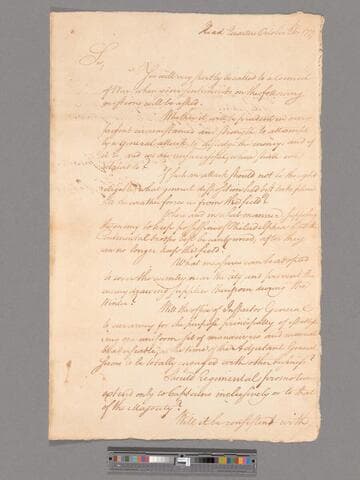 Head Quarters October 26th 1777
Sir,
You will very shortly be called to a Council
of War, when your sentiments on the following
questions will be asked.
Whether it will be prudent in our
present circumstances and strength to attempt
by a general attack to dislodge the enemy and if
it is and we are unsuccessful, where shall we
retreat to?
If such an attack should not be thought
eligible, what general disposition had best take place
till the weather forces us from the field?
Where and in what manner supposing
the enemy to keep possession of Philadelphia had the
Continental troops best be cantoned, after they
can no longer keep the field?
What measures can be adopted
to cover the country near the city and prevent the
enemy drawing supplies therefrom during the
Winter?
Will the office of Inspector General
to our army for the purpose principally of establish
ing one uniform set of manoeuvres and manual
be advisable as the time of the Adjutant General
seems to be totally engaged with other business?
Should regimental promotions
extend only to Captains inclusively or to that
of the Majority?
Will it be consistent with